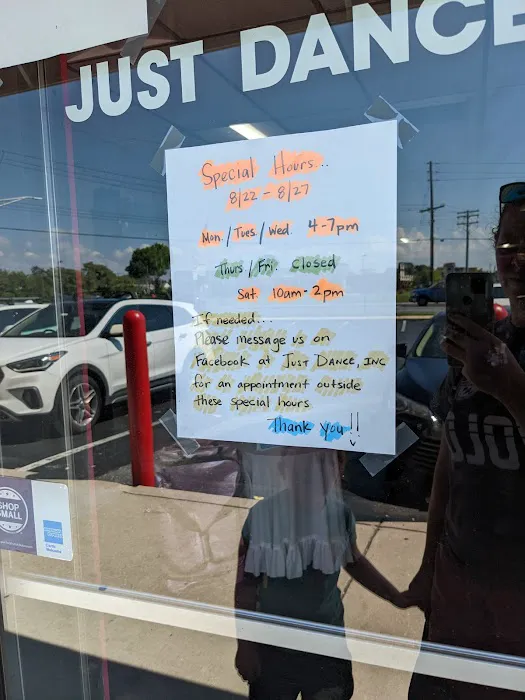 JUST DANCE
Special Hours...
8/22 - 8/27
Mon. / Tues. / Wed. 4-7pm
Thurs / Fri. closed
Sat. 10am - 2pm
If needed...
Please message us on
Facebook at JUST DANCE, INC
for an appointment outside
these special hours
Thank you!!
SHOP
SMALL